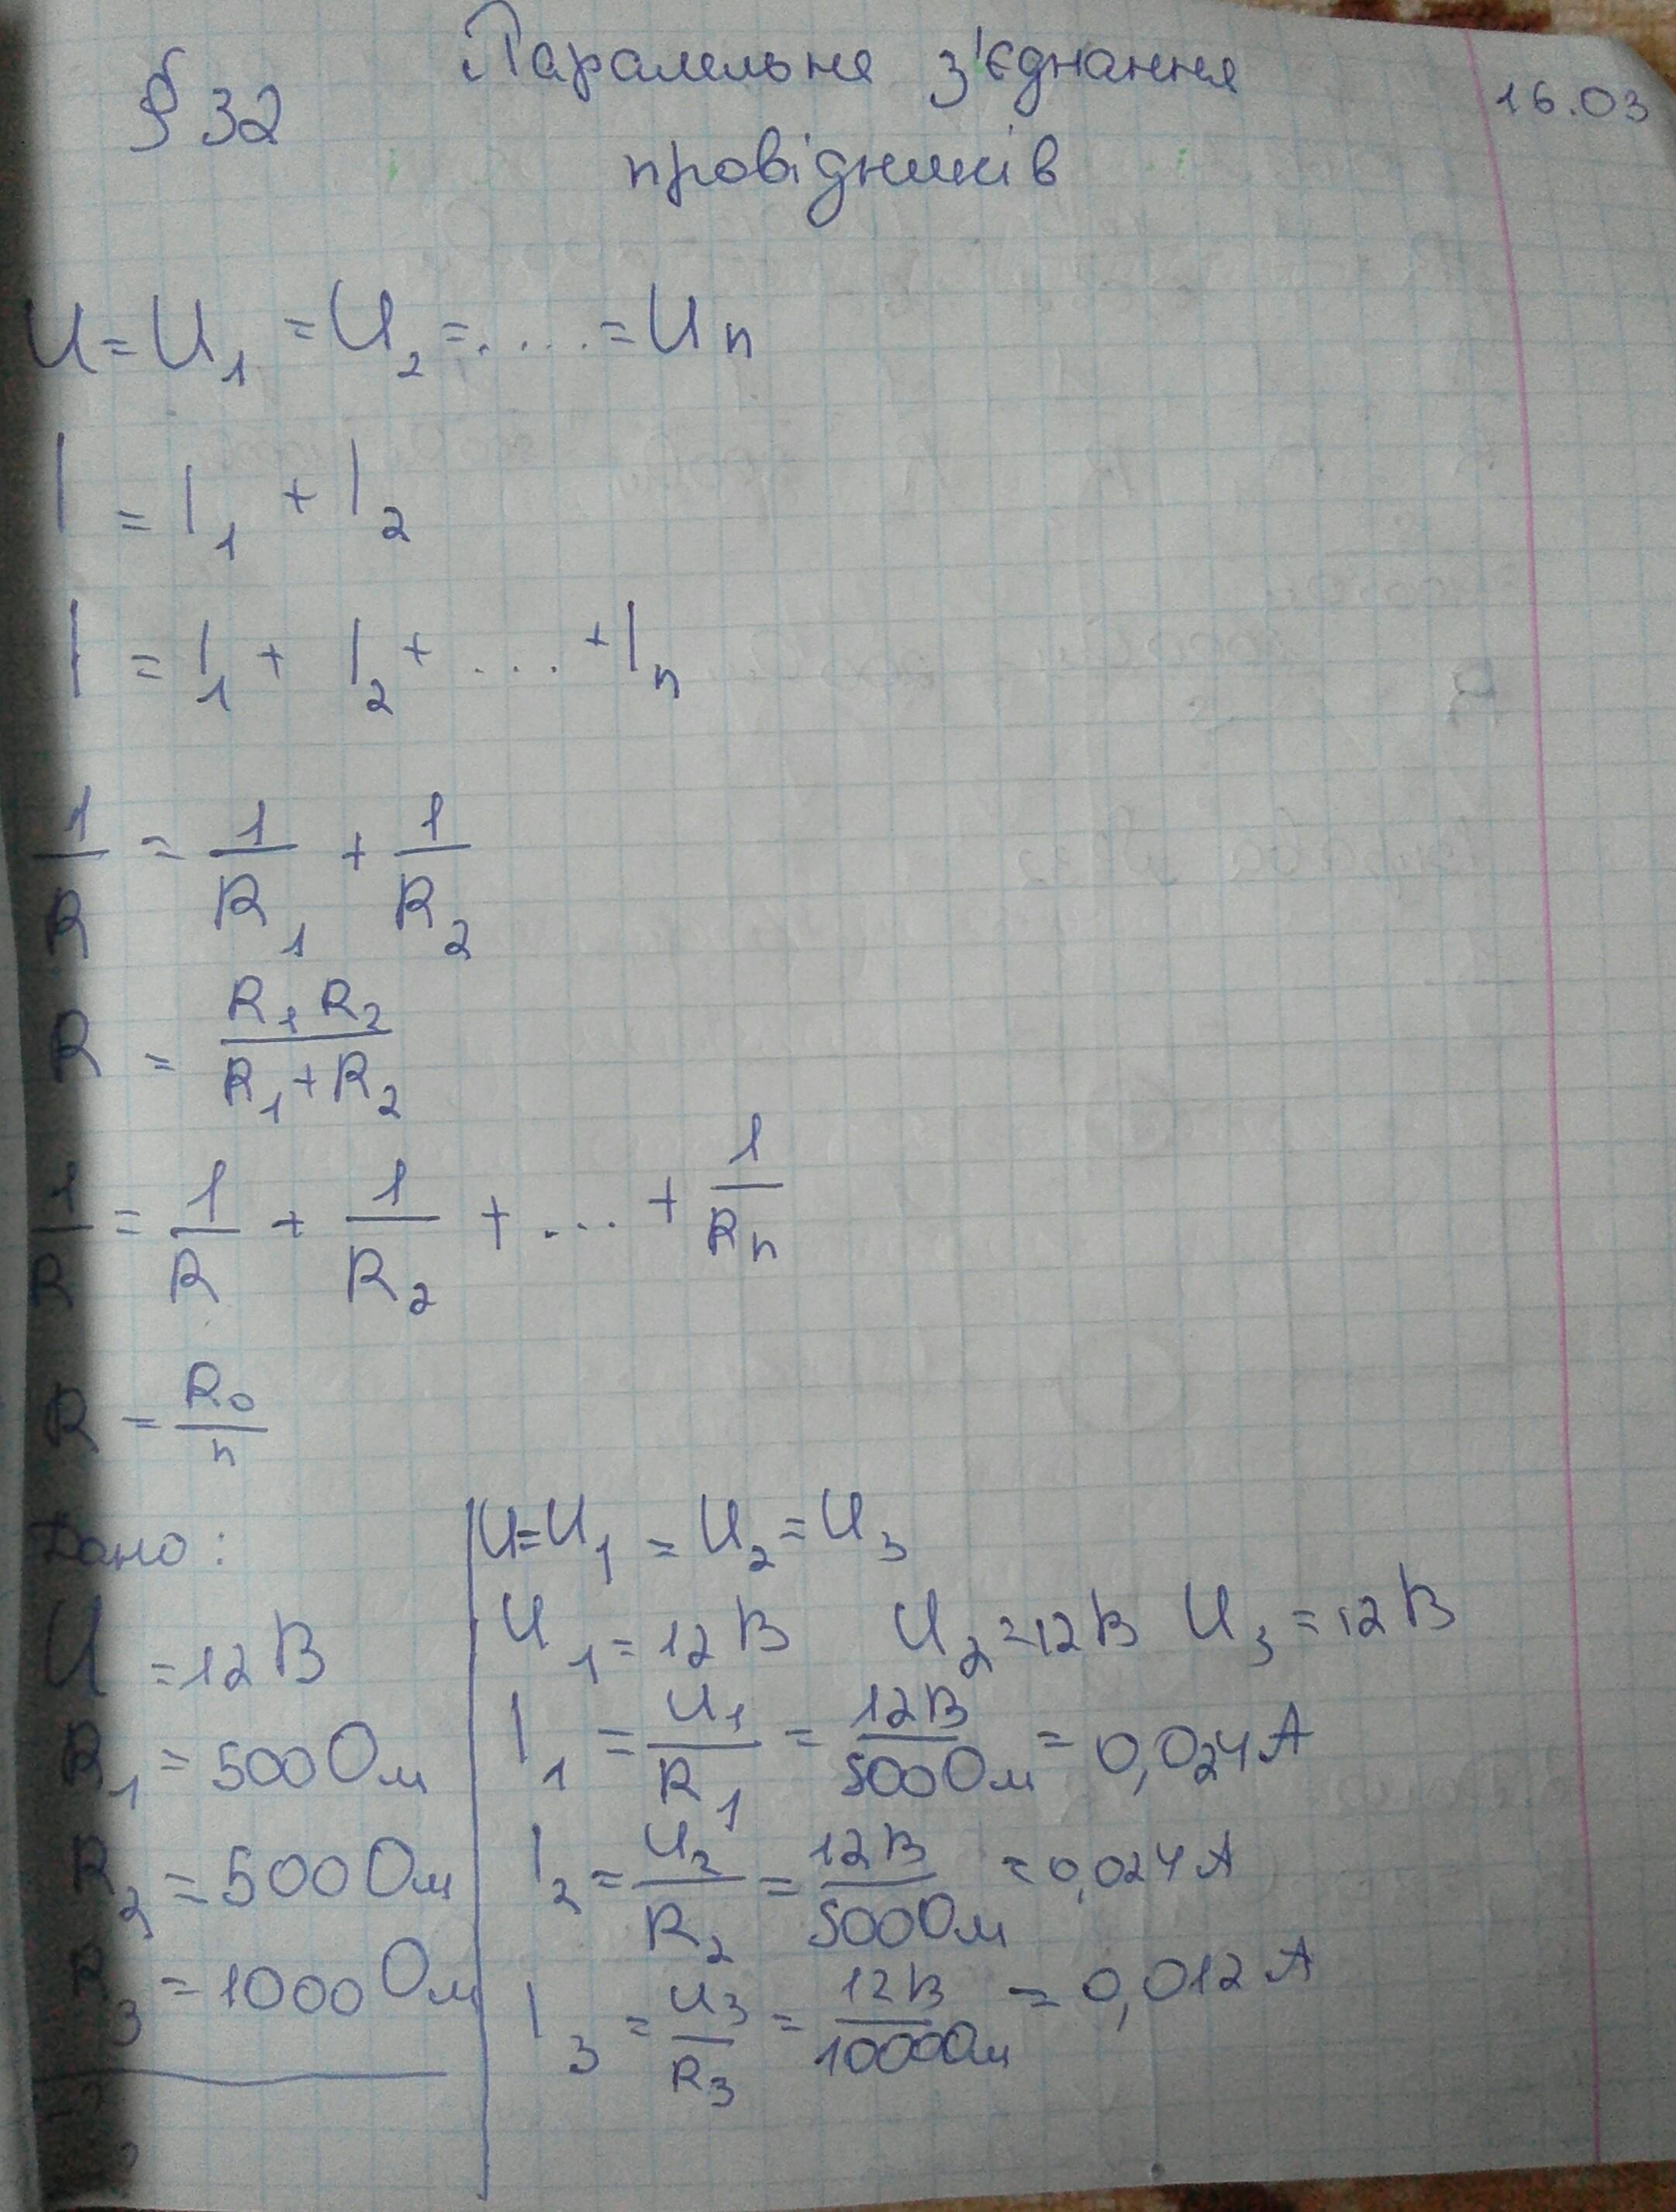 § 32 Паралельне з'єднання 16.03
провідників
U = U1 = U2 = .... = Un
I = I1 + I2
I = I1 + I2 + .... + In
1/R = 1/R1 + 1/R2
R = R1 R2 / R1 + R2
1/R = 1/R + 1/R2 + ... + 1/Rn
R = R0/n
Дано:
U = 12 В
R1 = 500 Ом
R2 = 500 Ом
R3 = 1000 Ом
U = U1 = U2 = U3
U1 = 12 В U2 = 12 В U3 = 12 В
I1 = U1/R1 = 12 В/500 Ом = 0,024 А
I2 = U2/R2 = 12 В/500 Ом = 0,024 А
I3 = U3/R3 = 12 В/1000 Ом = 0,012 А